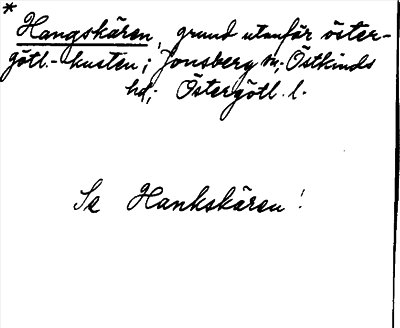 * Hangskären, grund utanför öster-
götl.-kusten; Jonsberg sn; Östkinds
hd; Östergötl. l.
Se Hankskären!